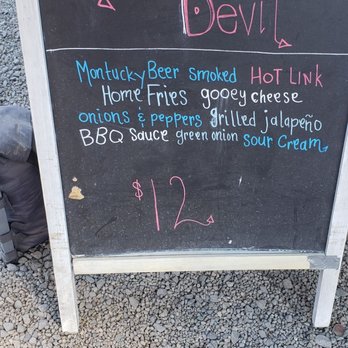 Devil
Montucky Beer smoked HOT LINK
Home Fries gooey cheese
onions & peppers grilled jalapeño
BBQ sauce green onion sour cream
$12